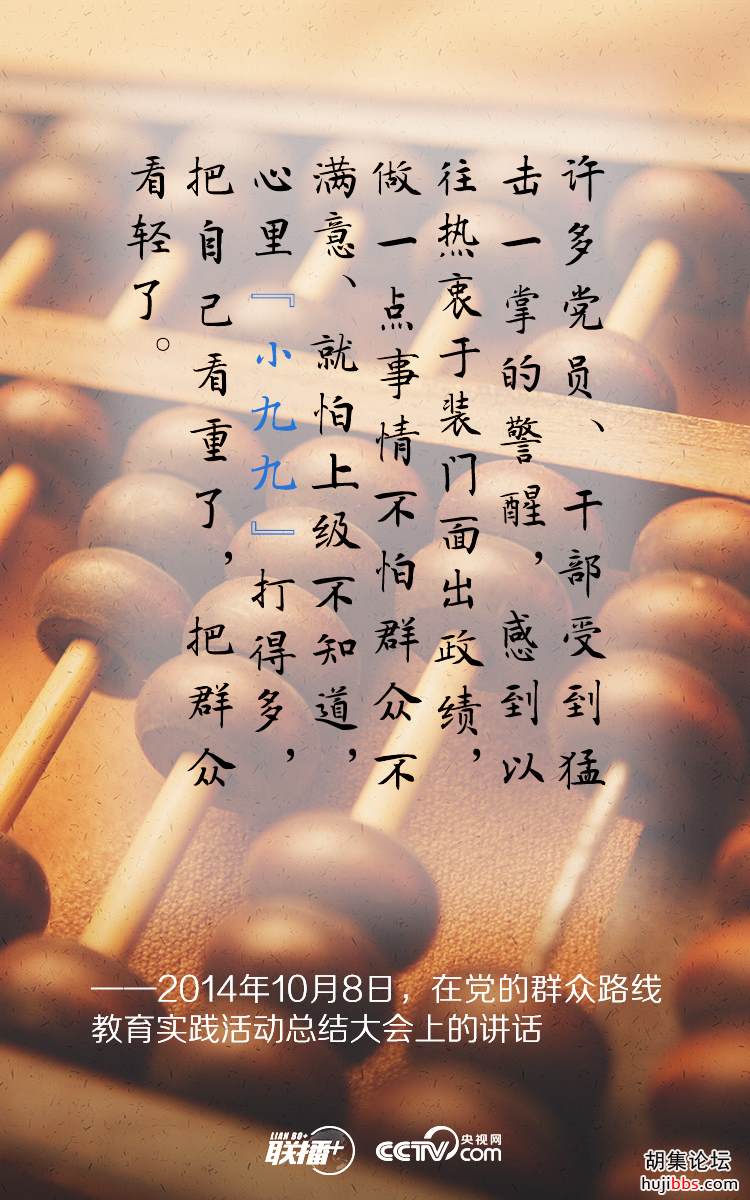 许多党员、干部受到猛
击一掌的警醒，感到以
往热衷于装门面出政绩，
做一点事情不怕群众不
满意、就怕上级不知道，
心里『小九九』打得多，
把自己看重了，把群众
看轻了。
——2014年10月8日，在党的群众路线
教育实践活动总结大会上的讲话
LIAN BO+
联播+
CCTV.com 央视网
胡集论坛
hujibbs.com